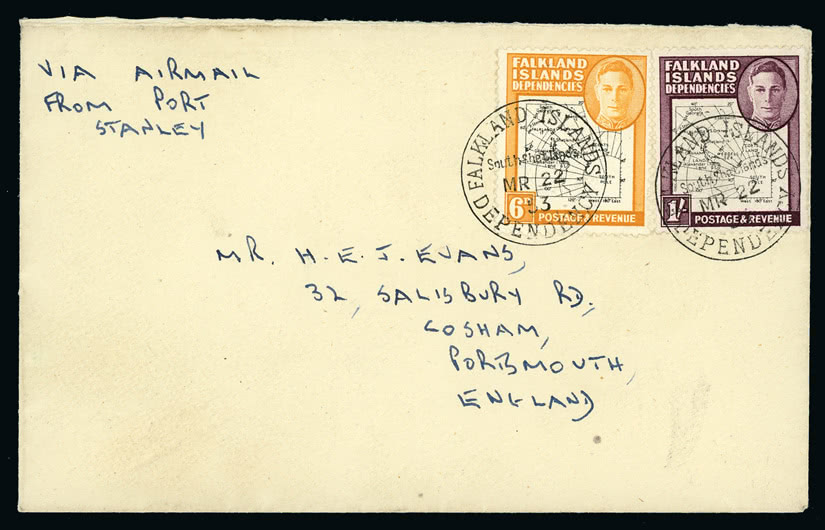 VIA AIRMAIL
FROM PORT
STANLEY
FALKLAND
ISLANDS
DEPENDENCIES
6D
POSTAGE & REVENUE
FALKLAND
ISLANDS
DEPENDENCIES
1/-
POSTAGE & REVENUE
FALKLAND ISLANDS
South Shetlands.
MR 22
53
DEPENDENCY
South Shetlands
MR 22
MR. H. E. J. EVANS,
32, SALISBURY RD,
COSHAM,
PORTSMOUTH,
ENGLAND